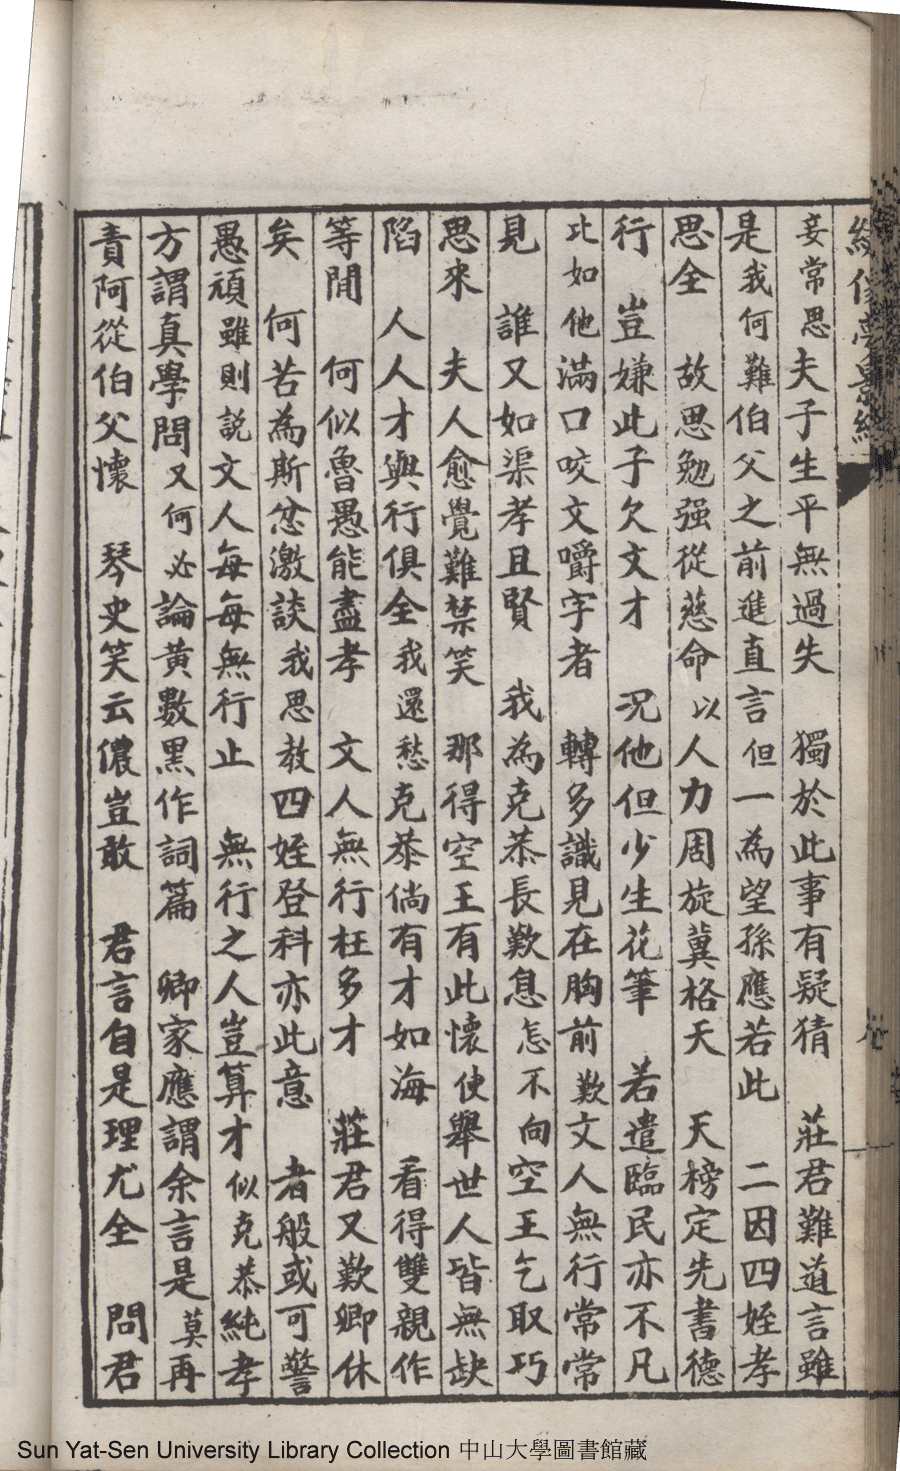 妾常思夫子生平無過失　獨於此事有疑猜　莊君難道言雖
是我何難伯父之前進直言但一為望孫應若此　二因四姪孝
思全　故思勉强從慈命以人力周旋冀格天　天榜定先書德
行　豈嫌此子欠文才　况他但少生花筆　若遣臨民亦不凡
比如他滿口咬文嚼字者　轉多識見在胸前歎文人無行常常
見　誰又如渠孝且賢　我為克恭長歎息怎不向空王乞取巧
思來　夫人愈覺難禁笑　那得空王有此懷使舉世人皆無缺
陷　人人才與行俱全我還愁克恭倘有才如海　看得雙親作
等閒　何似魯愚能盡孝　文人無行枉多才　莊君又歎卿休
矣　何苦為斯忿激談我思教四姪登科亦此意　者般或可警
愚頑雖則説文人每每無行止　無行之人豈算才似克恭純孝
方謂真學問又何必論黃數黑作詞篇　卿家應謂余言是莫再
責阿從伯父懷　琴史笑云儂豈敢　君言自是理尤全　問君
Sun Yat-Sen University Library Collection 中山大學圖書館藏